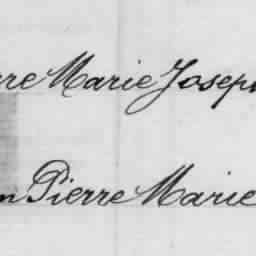 rre Marie Joseph
n Pierre Marie